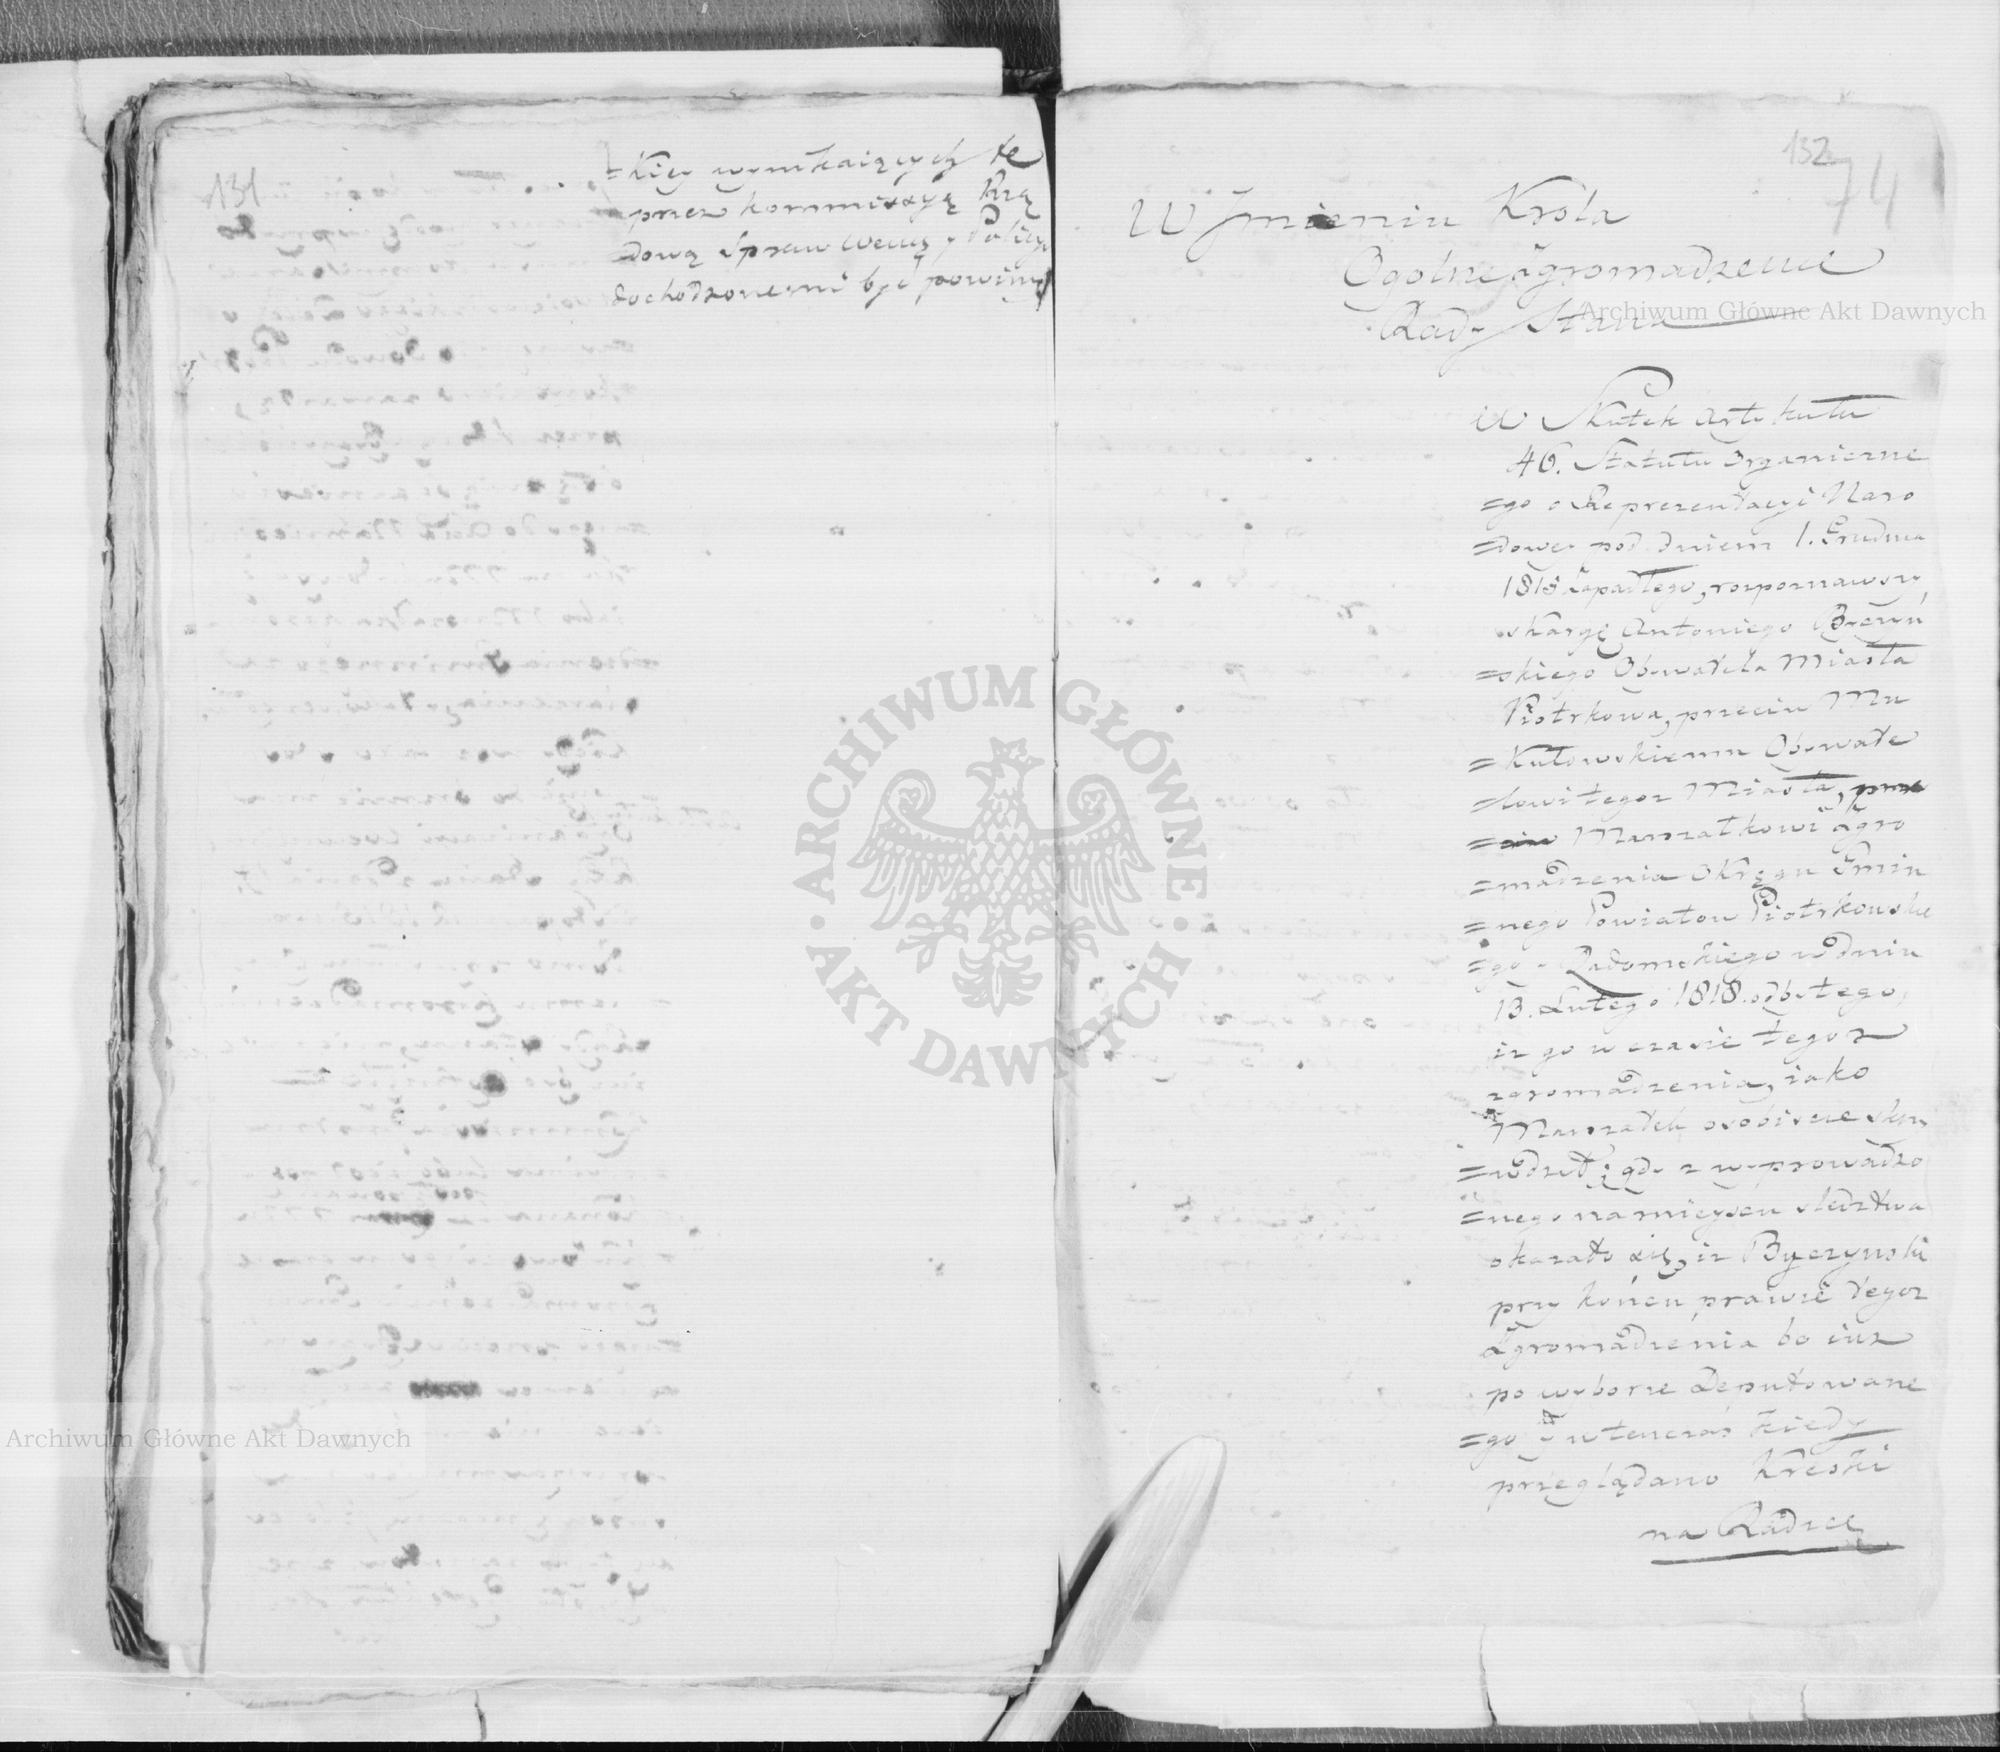 131
=kiey wynikaiących te
przez kommissyą Rzą
=dową Spraw Wewę y Policyi
dochodzonemi być powinny
152
74
W Jmieniu Krola
Ogolne Zgromadzenie
Rady Stanu
W Skutek Artykułu
46. Statutu Organiczne
=go o Reprezentacyi Naro
=dowey pod dniem 1. Grudnia
1815 zapadłego, rozpoznawszy
skargę Antoniego
=skiego Obywatela Miasta
Piotrkowa, przeciw Mu
=kułowskiemu Obywate
=lowi tegoz Miasta,
= Marszałkowi Zgro
=madzenia Okręgu Gmin
=nego Powiatow Piotrkowskie
=go y Radomskiego w dniu
13. Lutego 1818. odbytego,
iz go w czasie tegoz
zgromadzenia, iako
Marszałek osobiscie skrzy
=wdził; gdy z wyprowadzo
=nego na mieyscu sledztwa
okazało się, iz Byczynski
przy końcu prawie tegoz
Zgromadzenia bo iuz
po wyborze Deputowane
=go y wtenczas kiedy
przeglądano Kreski
na Radzcę
Archiwum Główne Akt Dawnych
Archiwum Główne Akt Dawnych
ARCHIWUM GŁÓWNE · AKT DAWNYCH ·